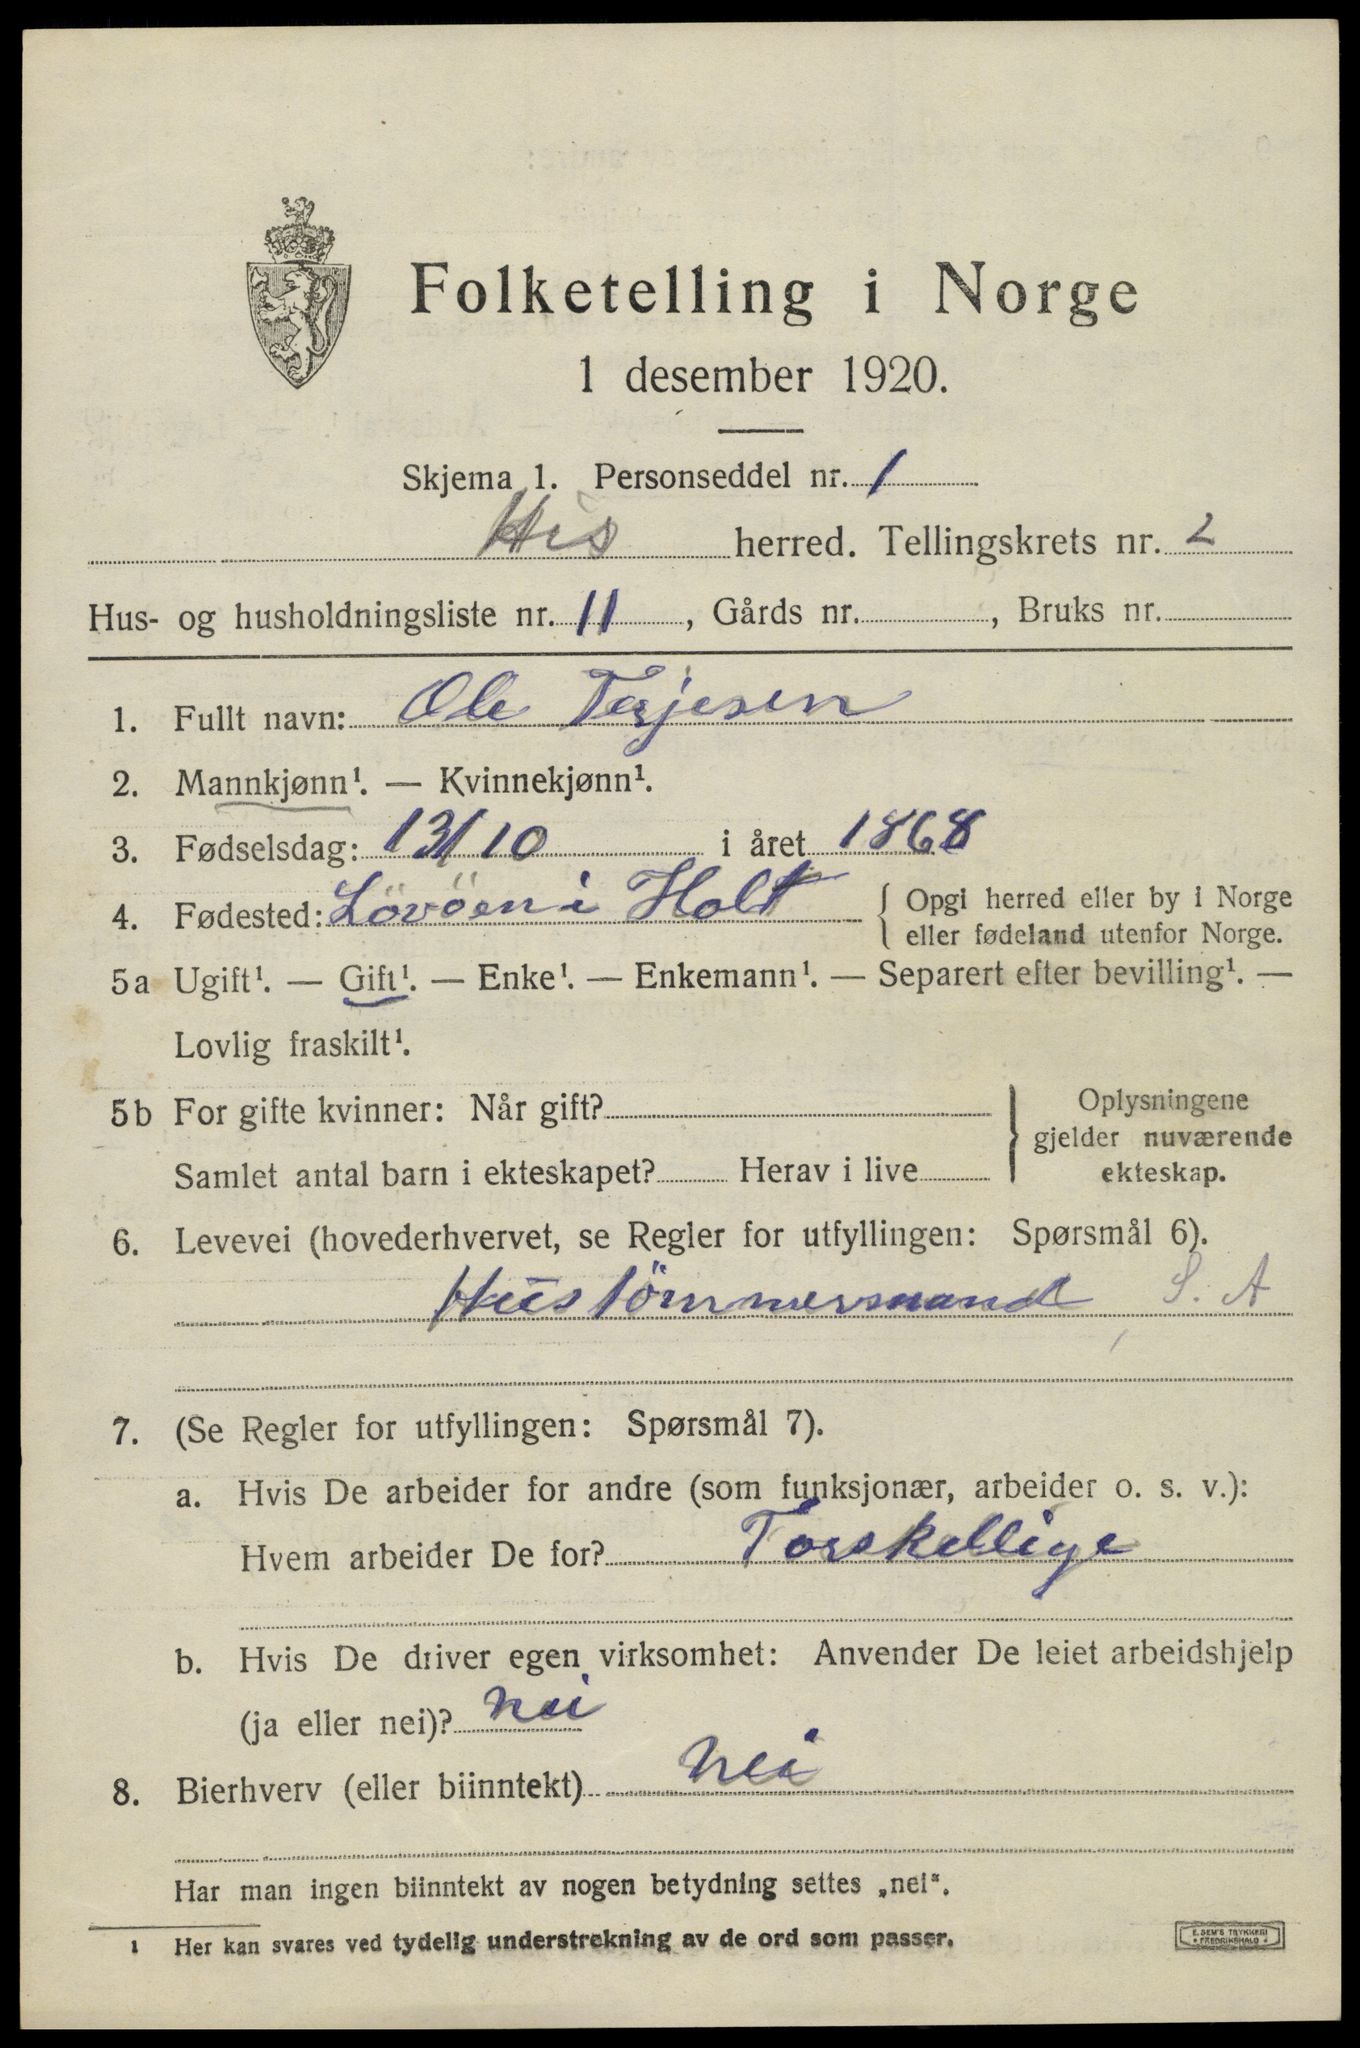 Folketelling i Norge
1 desember 1920.
Skjema 1. Personseddel nr. 1
His herred. Tellingskrets nr. 2
Hus- og husholdningsliste nr. 11, Gårds nr. , Bruks nr.
1. Fullt navn: Ole Terjesen
2. Mannkjønn¹. — Kvinnekjønn¹.
3. Fødselsdag: 13/10 i året 1868
4. Fødested: Lövöen i Holt { Opgi herred eller by i Norge
eller fødeland utenfor Norge.
5a Ugift¹. — Gift¹. — Enke¹. — Enkemann¹. — Separert efter bevilling¹. —
Lovlig fraskilt¹.
5b For gifte kvinner: Når gift? } Oplysningene
gjelder nuværende
Samlet antal barn i ekteskapet? Herav i live ekteskap.
6. Levevei (hovederhvervet, se Regler for utfyllingen: Spørsmål 6).
Hüstömmermand S. A
7. (Se Regler for utfyllingen: Spørsmål 7).
a. Hvis De arbeider for andre (som funksjonær, arbeider o. s. v.):
Hvem arbeider De for? Forskellige
b. Hvis De driver egen virksomhet: Anvender De leiet arbeidshjelp
(ja eller nei)? nei
8. Bierhverv (eller biinntekt) nei
Har man ingen biinntekt av nogen betydning settes „nei".
1 Her kan svares ved tydelig understrekning av de ord som passer.
E. SEM'S TRYKKERI
FREDRIKSHALD